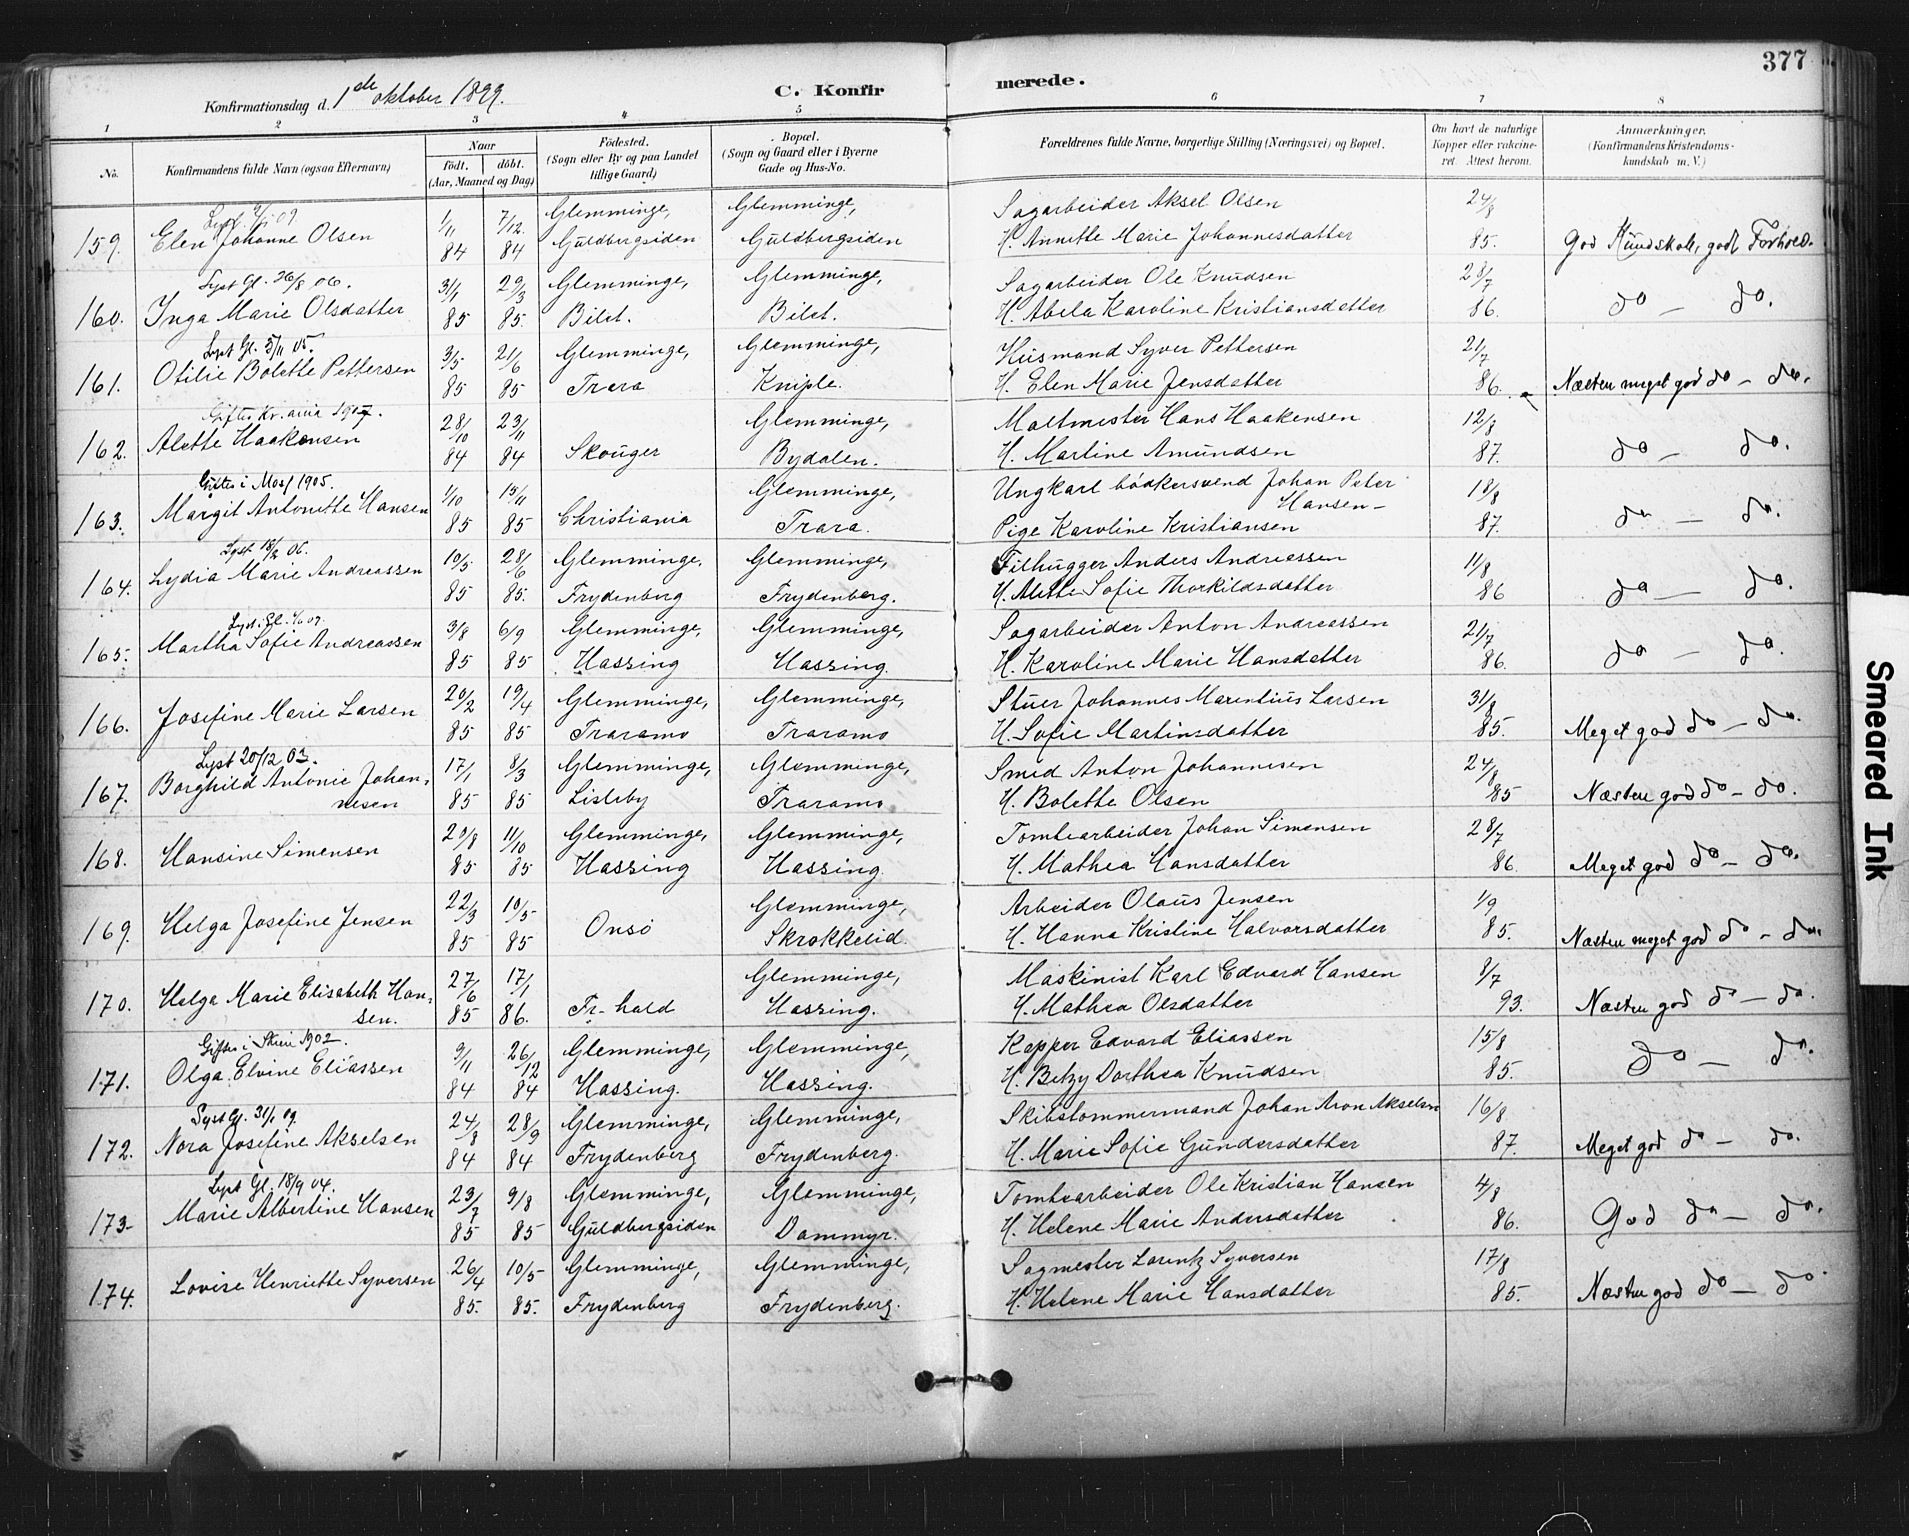 377
Konfirmationsdag d. 1ste oktober 1899.
C. Konfirmerede.
1 2 3 4 5 6 7 8
No.
Konfirmandens fulde Navn (ogsaa Efternavn)
Naar
födt. döbt.
(Aar, Maaned og Dag)
Födested.
(Sogn eller By og paa Landet
tillige Gaard)
Bopæl.
(Sogn og Gaard eller i Byerne
Gade og Hus-No.
Forældrenes fulde Navne, borgerlige Stilling (Næringsvei) og Bopæl.
Om havt de naturlige
Kopper eller vakcineret.
Attest herom.
Anmærkninger,
(Konfirmandens Kristendomskundskab
m. V.)
Lyst 09
159. Elen Johanne Olsen 1/11 84 7/12 84 Glemminge, Guldbergsiden Glemminge, Guldbergsiden
Sagarbeider Aksel Olsen
H. Annette Marie Johannesdatter 24/8 85. God Kundskab, godt Forhold.
Lyst Gl. 26/8 06.
160. Inga Marie Olsdatter 31/1 85 29/3 85. Glemminge, Bilet. Glemminge, Bilet.
Sagarbeider Ole Knudsen
H. Abela Karoline Kristiansdatter 28/7 86. do — do.
Lyst Gl. 5/11 05.
161. Otilie Bolette Pettersen 3/5 85 21/6 85 Glemminge, Trara Glemminge, Kniple.
Husmand Syver Pettersen
H. Elen Marie Jensdatter 21/7 86. Næsten meget god do — do.
Giftes Kr.ania 1907.
162. Alette Haakensen 28/10 84 23/11 84 Skouger Glemminge, Bydalen.
Maltmester Hans Haakensen
H. Martine Amundsen 12/8 87. do — do.
Giftes i Moss 1905.
163. Margit Antonette Hansen 1/10 85 15/11 85 Christiania Glemminge, Trara.
Ungkarl bödkersvend Johan Peter Hansen —
Pige Karoline Kristiansen 18/8 87. do — do.
Lyst 18/2 06.
164. Lydia Marie Andreassen 10/5 85 28/6 85. Glemminge, Frydenberg Glemminge, Frydenberg.
Filhugger Anders Andreassen
H. Alette Sofie Thorkildsdatter 11/8 86 do — do.
Lyst i Gl.
165. Martha Sofie Andreassen 3/8 85 6/9 85 Glemminge, Hassing Glemminge, Hassing.
Sagarbeider Anton Andreassen
H. Karoline Marie Hansdatter 21/7 86. do — do.
166. Josefine Marie Larsen 20/2 85 19/4 85 Glemminge, Traramo Glemminge, Traramo
Stuer Johannes Marentius Larsen
H. Sofie Martinsdatter 31/8 85. Meget god do — do.
Lyst 20/12 03.
167. Borghild Antonie Johannesen 17/1 85 8/3 85 Glemminge, Lisleby Glemminge, Traramo
Smed Anton Johannesen
H. Bolette Olsen 24/8 85 Næsten god do — do.
168. Hansine Simensen 20/8 85 11/10 85 Glemminge, Hassing Glemminge, Hassing.
Tomtearbeider Johan Simensen
H. Mathea Hansdatter 28/7 86. Meget god do — do.
169. Helga Josefine Jensen 22/3 85 10/5 85 Onsö Glemminge, Skrokkelid.
Arbeider Olaus Jensen
H. Hanna Kristine Halvorsdatter 1/9 85. Næsten meget god do — do.
170. Helga Marie Elisabeth Hansen. 27/6 85 17/1 86. Fr-hald Glemminge, Hassing.
Maskinist Karl Edvard Hansen
H. Mathea Olsdatter 8/7 93. Næsten god do — do.
Giftes i Skien 1902.
171. Olga Elvine Eliassen 9/11 84 26/12 84 Glemminge, Hassing. Glemminge, Hassing.
Kapper Edvard Eliassen
H. Betzy Dorthea Knudsen 15/8 85. do — do.
Lyst Gl. 31/1 09.
172. Nora Josefine Akselsen 24/8 84 28/9 84 Glemminge, Frydenberg Glemminge, Frydenberg.
Skibstommermand Johan Aron Akselsen
H. Marie Sofie Gundersdatter 16/8 87. Meget god do — do.
Lyst Gl. 18/9 04.
173. Marie Albertine Hansen 23/7 85 9/8 85 Glemminge, Guldbergsiden Glemminge, Dammyr.
Tomtearbeider Ole Kristian Hansen
H. Helene Marie Andersdatter 4/8 86. God do — do.
174. Lovise Henriette Syversen 26/4 85. 10/5 85. Glemminge, Frydenberg Glemminge, Frydenberg.
Sagmester Lorentz Syversen
H. Helene Marie Hansdatter 17/8 85. Næsten god do — do.
Smeared Ink